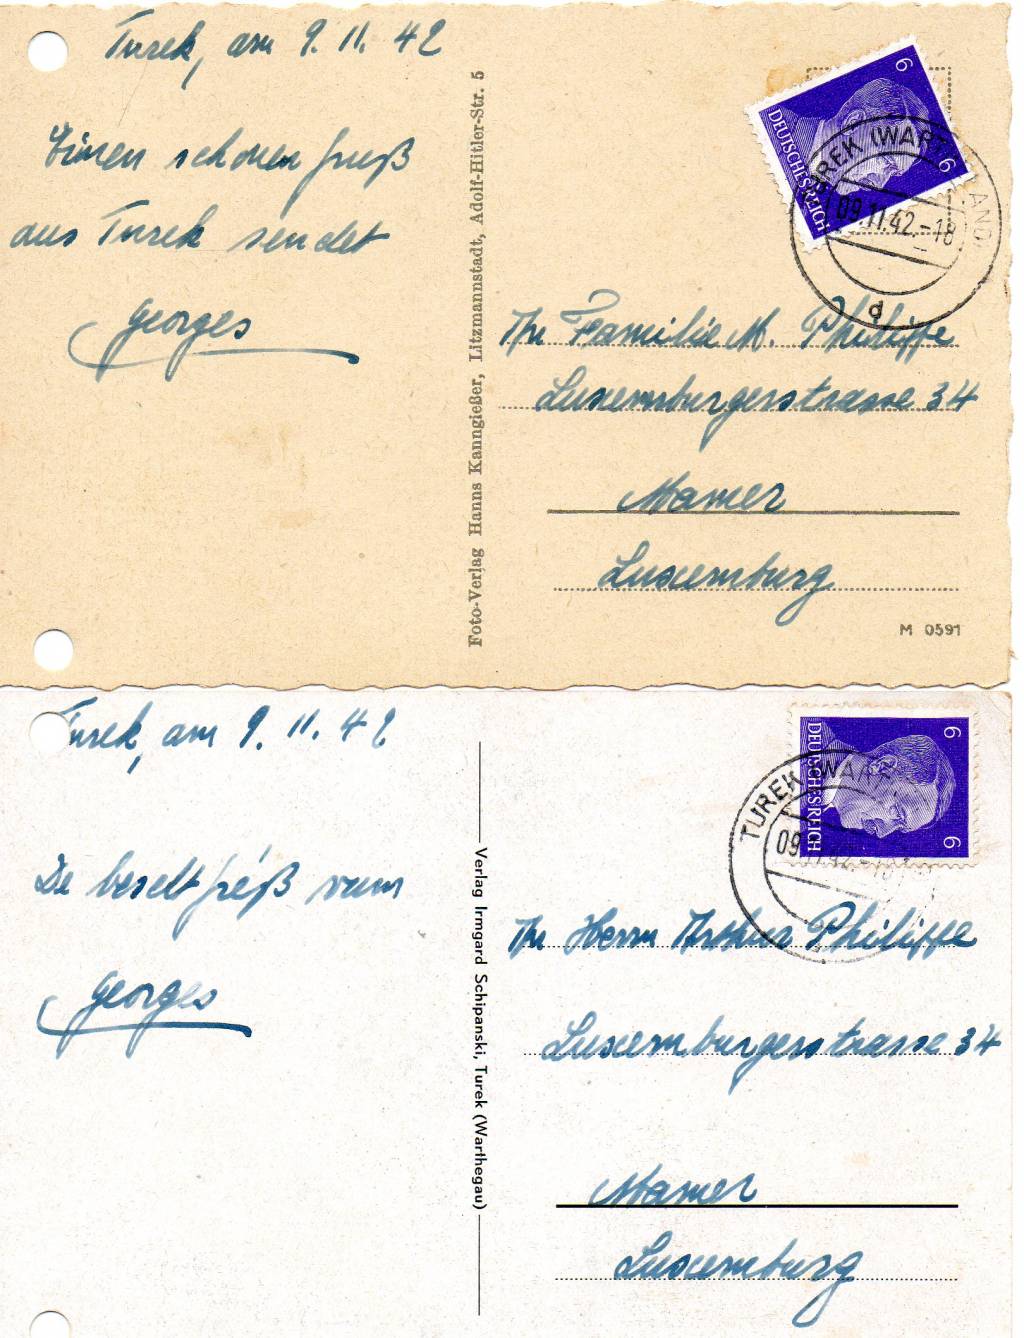 Turek, am 9. 11. 42
Einen schönen Gruß
aus Turek sendet
Georges
Foto-Verlag Hanns Kanngießer, Litzmannstadt, Adolf-Hitler-Str. 5
6
6
DEUTSCHES REICH
TUREK (WARTHELAND)
09.11.42.-18
d
Familie M. Philippe
Luxemburgerstrasse 34
Mamer
Luxemburg
M 0591
Turek, am 9. 11. 42
De bescht Gréß vum
Georges
Verlag Irmgard Schipanski, Turek (Warthegau)
6
6
DEUTSCHES REICH
TUREK (WART
09.11.42.-18
Herrn Arthur Philippe
Luxemburgerstrasse 34
Mamer
Luxemburg